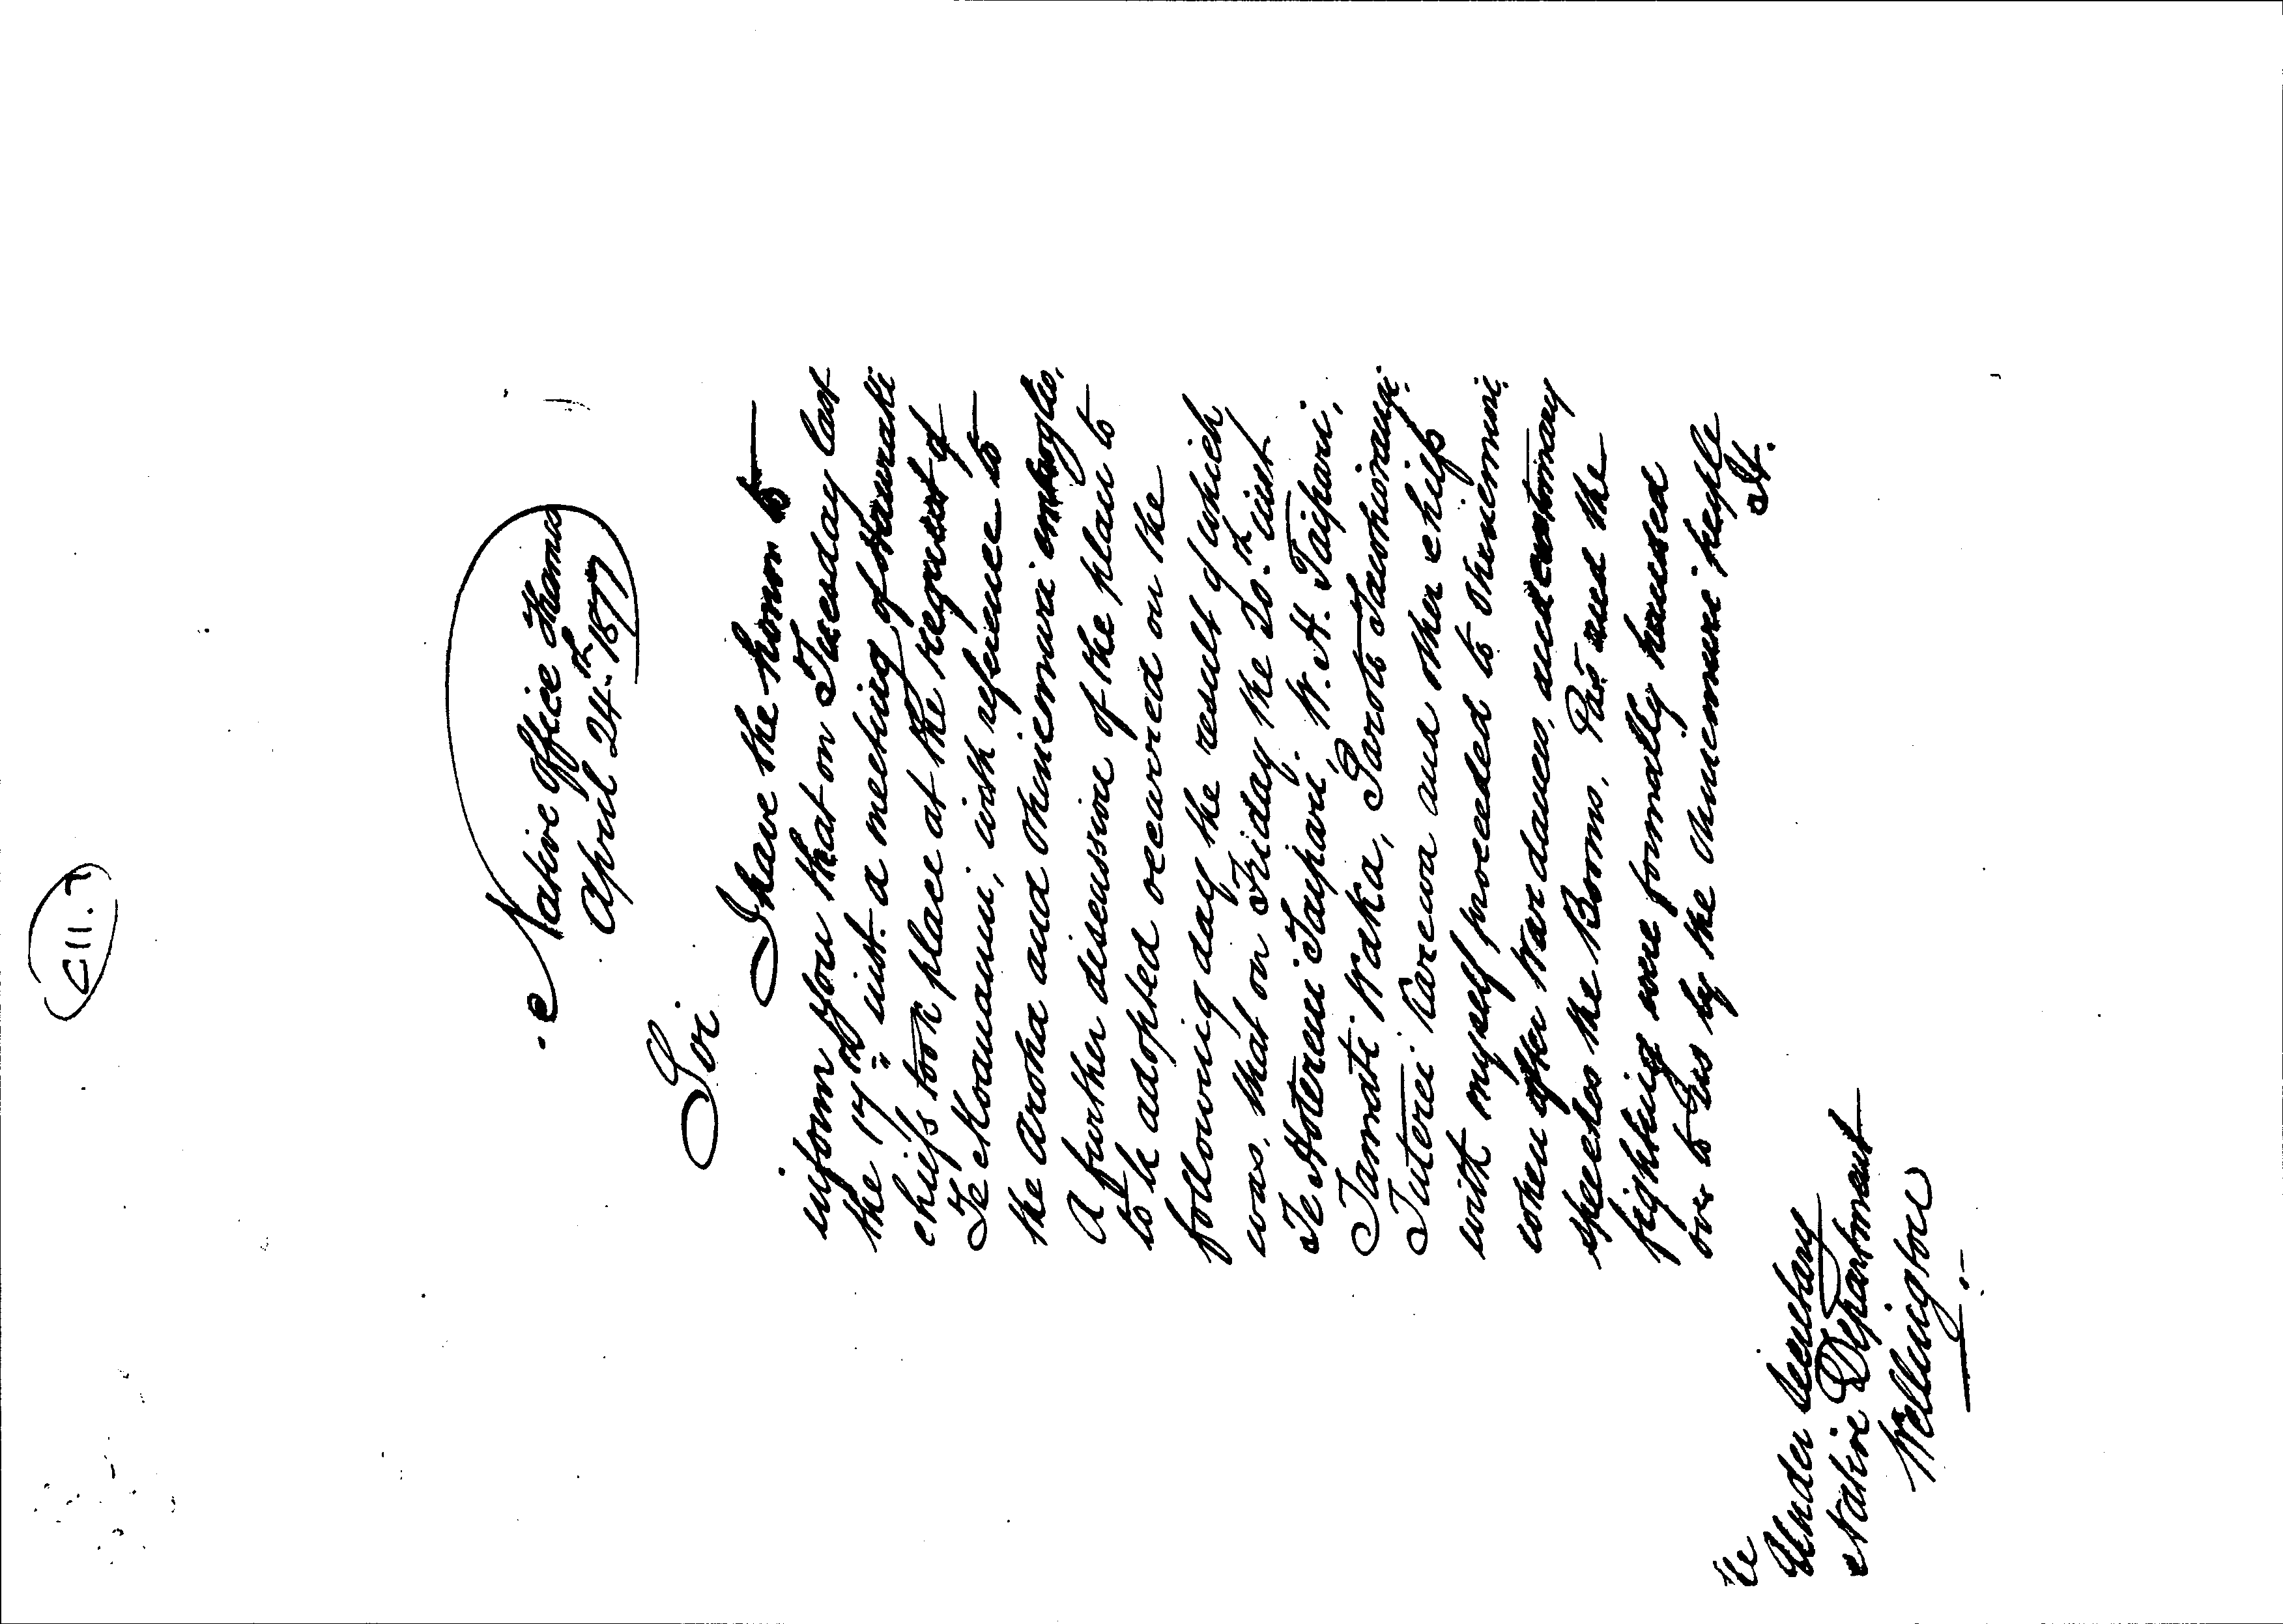 C 11. 7
Native Office Thames
April 24th 1877
Sir
I have the honor to
inform you that on Tuesday last
the 17th inst. a meeting of Hauraki
chiefs took place at the request of
Te Moananui, with reference to
the Aroha and Ohinemuri imbroglio,
A further discussion of the plan to
to be adopted occurred on the
following day the result of which
was, that on Friday the 20th inst.
Te Hotereni Taipari, W. H. Taipari,
Tamati Waka, Parata
Tuterei Karewa and other chiefs
with myself proceeded to Ohinemuri
when after War dances, and customary
speeches the Booms, Pas and the
fighting were formally handed
over to us by the Ohinemuri people
The
Under Secretary
Native Department
Wellington